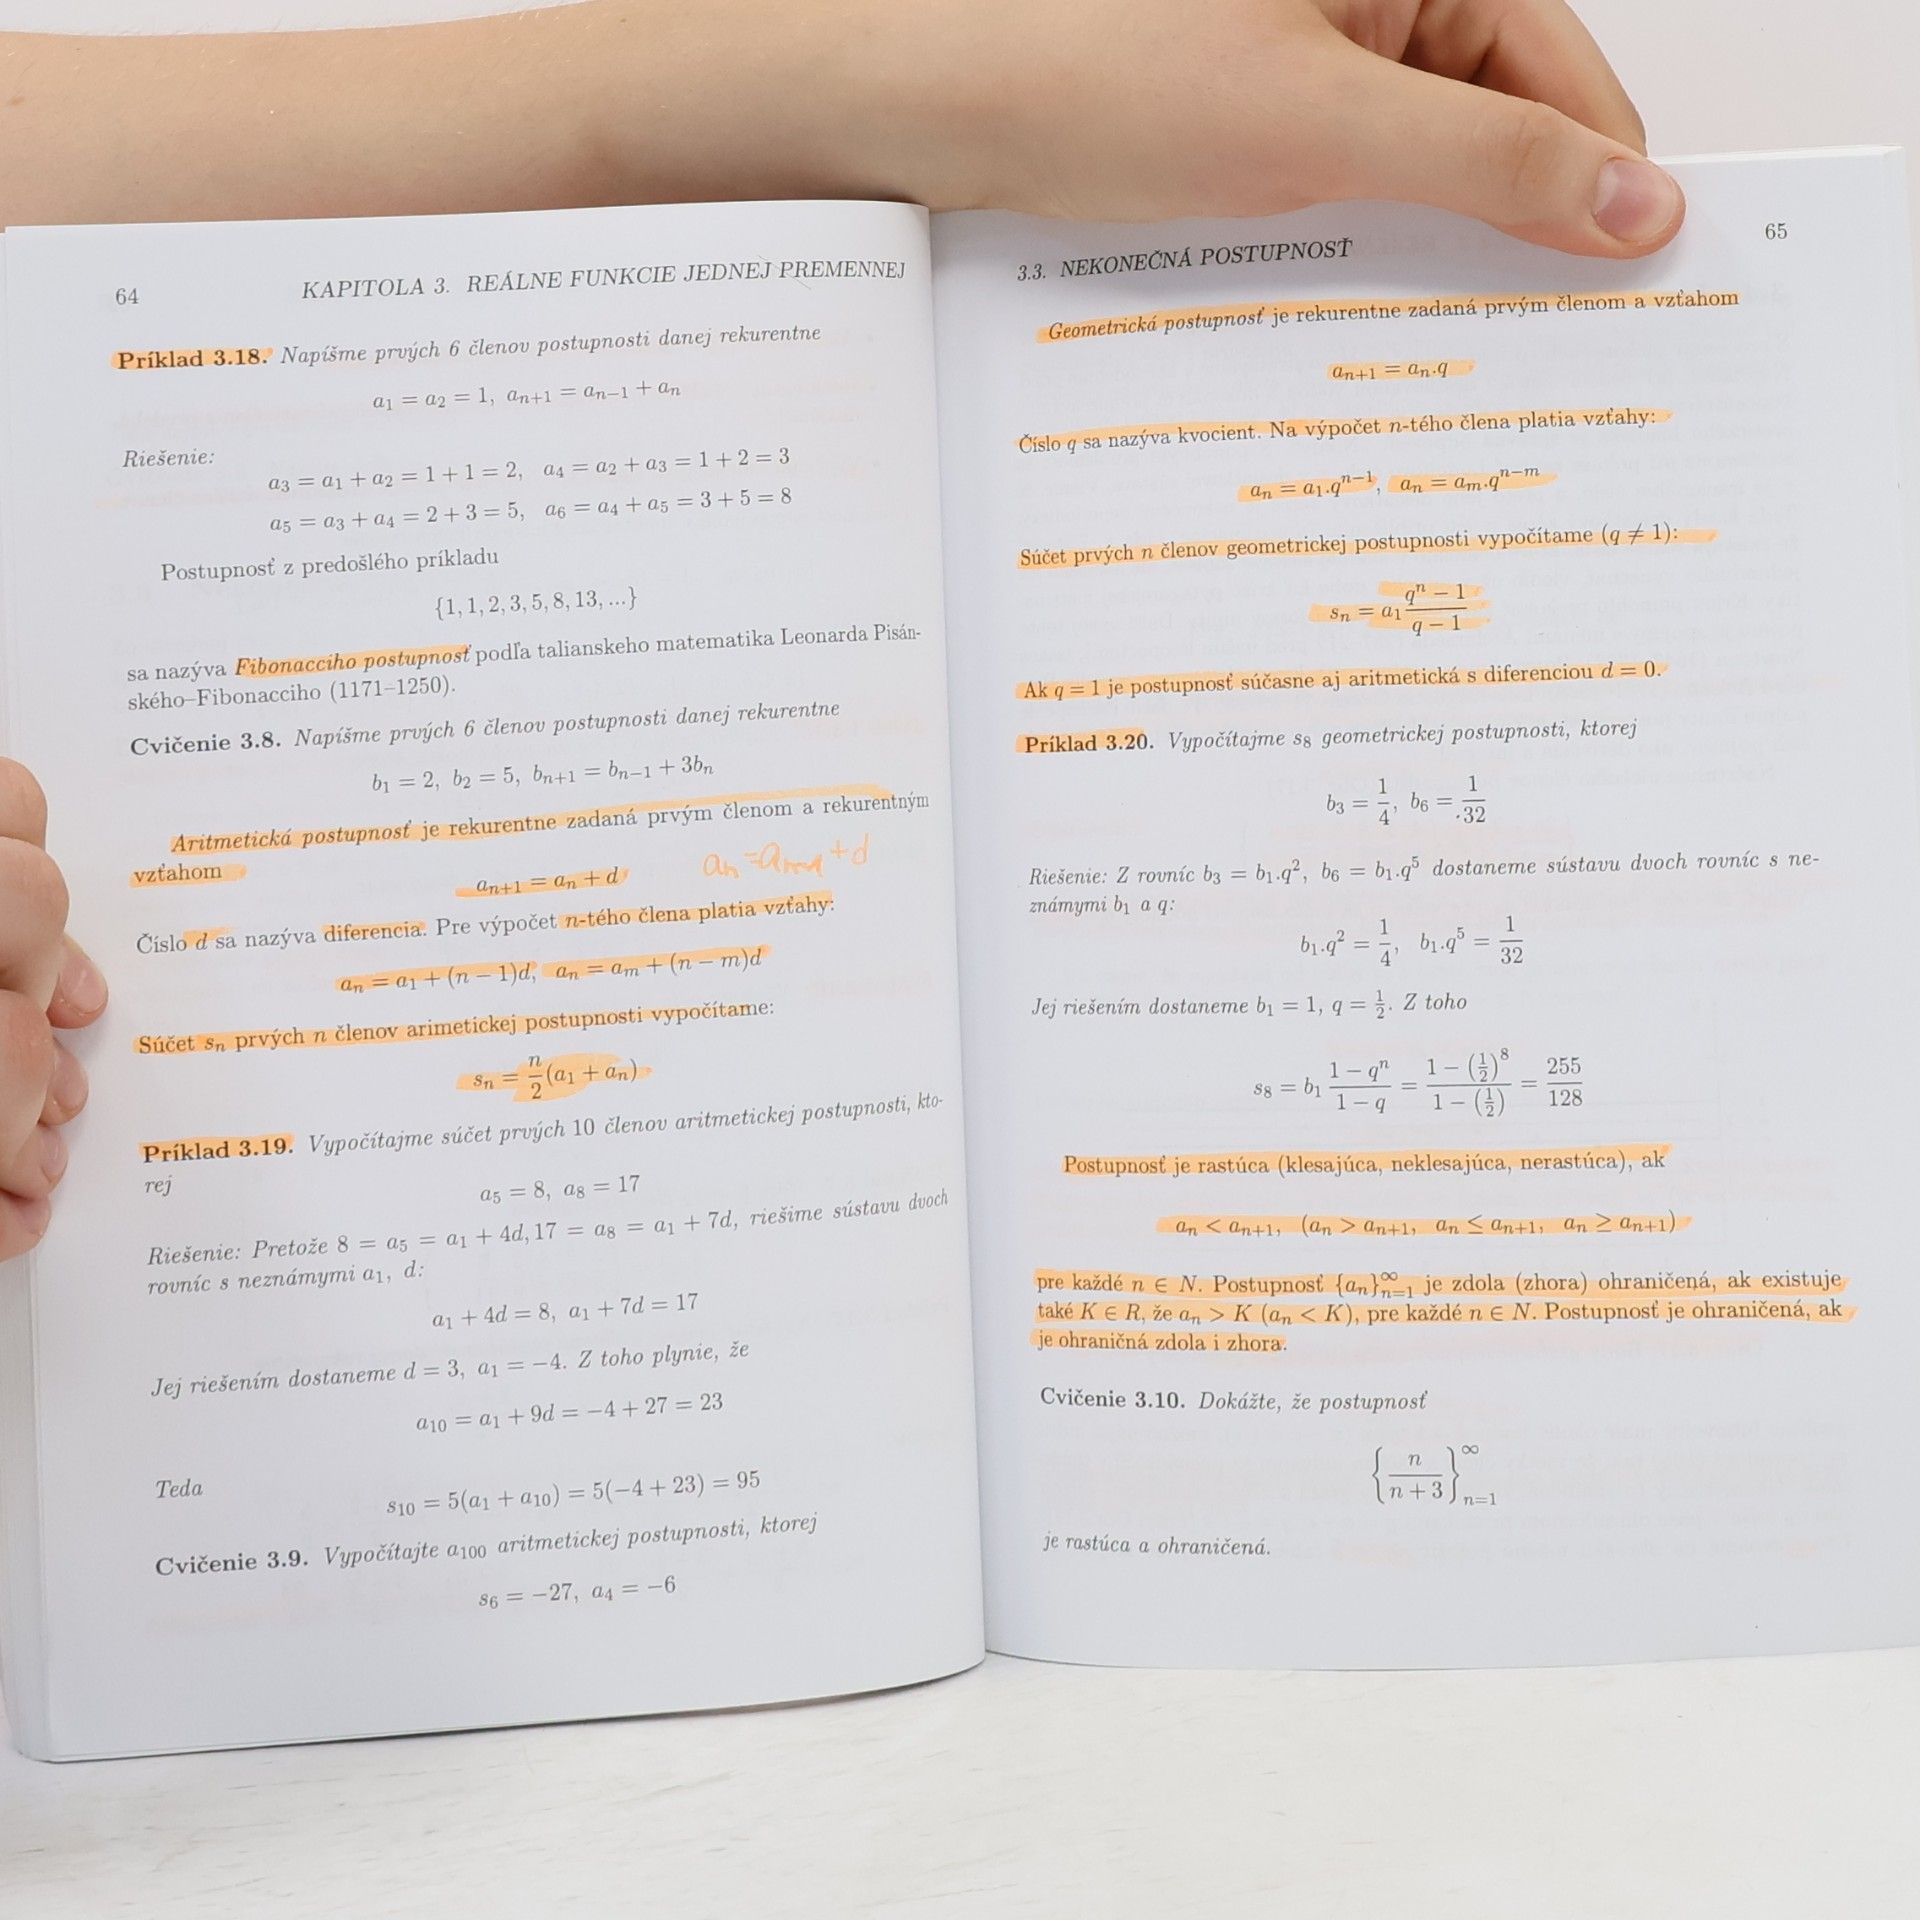 64 KAPITOLA 3. REÁLNE FUNKCIE JEDNEJ PREMENNEJ
Príklad 3.18. Napíšme prvých 6 členov postupnosti danej rekurentne
a₁ = a₂ = 1, aₙ₊₁ = aₙ₋₁ + aₙ
Riešenie:
a₃ = a₁ + a₂ = 1 + 1 = 2, a₄ = a₂ + a₃ = 1 + 2 = 3
a₅ = a₃ + a₄ = 2 + 3 = 5, a₆ = a₄ + a₅ = 3 + 5 = 8
Postupnosť z predošlého príkladu
{1, 1, 2, 3, 5, 8, 13, ...}
sa nazýva Fibonacciho postupnosť podľa talianskeho matematika Leonarda Pisán-
ského–Fibonacciho (1171–1250).
Cvičenie 3.8. Napíšme prvých 6 členov postupnosti danej rekurentne
b₁ = 2, b₂ = 5, bₙ₊₁ = bₙ₋₁ + 3bₙ
Aritmetická postupnosť je rekurentne zadaná prvým členom a rekurentným
vzťahom
aₙ₊₁ = aₙ + d
Číslo d sa nazýva diferencia. Pre výpočet n-tého člena platia vzťahy:
aₙ = a₁ + (n − 1)d, aₙ = aₘ + (n − m)d
Súčet sₙ prvých n členov arimetickej postupnosti vypočítame:
sₙ = n/2 (a₁ + aₙ)
Príklad 3.19. Vypočítajme súčet prvých 10 členov aritmetickej postupnosti, kto-
rej
a₅ = 8, a₈ = 17
Riešenie: Pretože 8 = a₅ = a₁ + 4d, 17 = a₈ = a₁ + 7d, riešime sústavu dvoch
rovníc s neznámymi a₁, d:
a₁ + 4d = 8, a₁ + 7d = 17
Jej riešením dostaneme d = 3, a₁ = −4. Z toho plynie, že
a₁₀ = a₁ + 9d = −4 + 27 = 23
Teda
s₁₀ = 5(a₁ + a₁₀) = 5(−4 + 23) = 95
Cvičenie 3.9. Vypočítajte a₁₀₀ aritmetickej postupnosti, ktorej
s₆ = −27, a₄ = −6
3.3. NEKONEČNÁ POSTUPNOSŤ 65
Geometrická postupnosť je rekurentne zadaná prvým členom a vzťahom
aₙ₊₁ = aₙ.q
Číslo q sa nazýva kvocient. Na výpočet n-tého člena platia vzťahy:
aₙ = a₁.qⁿ⁻¹, aₙ = aₘ.qⁿ⁻ᵐ
Súčet prvých n členov geometrickej postupnosti vypočítame (q ≠ 1):
sₙ = a₁ (qⁿ − 1)/(q − 1)
Ak q = 1 je postupnosť súčasne aj aritmetická s diferenciou d = 0.
Príklad 3.20. Vypočítajme s₈ geometrickej postupnosti, ktorej
b₃ = 1/4, b₆ = 1/32
Riešenie: Z rovníc b₃ = b₁.q², b₆ = b₁.q⁵ dostaneme sústavu dvoch rovníc s ne-
známymi b₁ a q:
b₁.q² = 1/4, b₁.q⁵ = 1/32
Jej riešením dostaneme b₁ = 1, q = 1/2. Z toho
s₈ = b₁ (1 − qⁿ)/(1 − q) = (1 − (1/2)⁸)/(1 − (1/2)) = 255/128
Postupnosť je rastúca (klesajúca, neklesajúca, nerastúca), ak
aₙ < aₙ₊₁, (aₙ > aₙ₊₁, aₙ ≤ aₙ₊₁, aₙ ≥ aₙ₊₁)
pre každé n ∈ N. Postupnosť {aₙ}ₙ₌₁^∞ je zdola (zhora) ohraničená, ak existuje
také K ∈ R, že aₙ > K (aₙ < K), pre každé n ∈ N. Postupnosť je ohraničená, ak
je ohraničná zdola i zhora.
Cvičenie 3.10. Dokážte, že postupnosť
{n/(n + 3)}ₙ₌₁^∞
je rastúca a ohraničená.